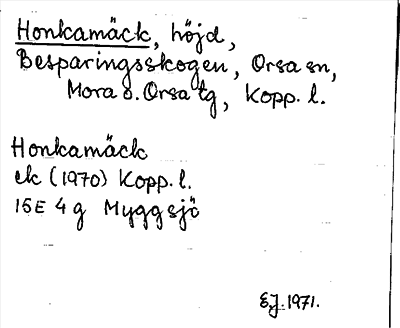 Honkamäck, höjd,
Besparingsskogen, Orsa sn,
Mora o. Orsa tg, Kopp. l.
Honkamäck
ek (1970) Kopp. l.
15E 4g Myggsjö
EJ. 1971.